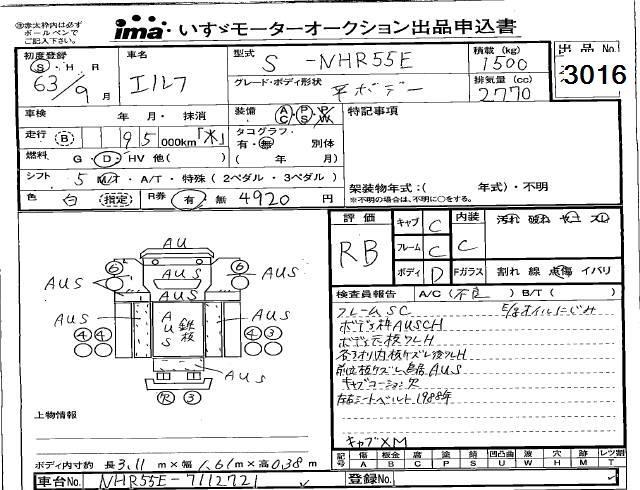 ㊟赤太枠内は必ず
ボールペンで
ご記入下さい。
ima いすゞモーターオークション出品申込書
初度登録
S・H・R
63/9月
車名
エルフ
型式
S -NHR55E
グレード・ボディ形状
平ボデー
積載(kg)
1500
排気量(cc)
2770
出品No.
3016
車検 年・月・抹消
装備 AC・PS・PW
特記事項
走行 B 95 000km「メ」
タコグラフ
有・無 別体
( 年 月)
燃料 G・D・HV 他( )
シフト 5 M/T・A/T・特殊(2ペダル・3ペダル)
色 白 指定
R券 有・無 4920円
架装物年式:( 年式)・不明
※不明の場合は、不明に○をする。
評価
RB
キャブ C
フレーム C
ボディ D
内装
C
Fガラス
汚れ 破れ ヤニ スレ
割れ 線 点傷 イバリ
検査員報告 A/C(不良) B/T( )
フレームSC
ボデー枠AUSCH
キャブコーション欠
左右シートベルト1988年
キャブXM
AU
6 6
AUS AUS AUS
AUS
AUS AUS AUS
鉄板
4 4 4 3
AUS
R 3
上物情報
ボディ内寸約 長3.11m×幅1.61m×高0.38m
記号 傷A 板金B 腐C 塗P 錆S 凹凸曲U 波W 穴H 跡M レツ割T
車台No. NHR55E-7112721
登録No.